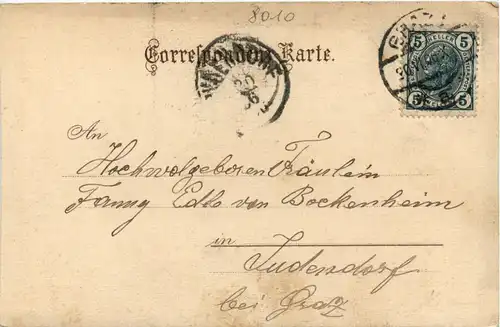 8010
Correspondenz-Karte.
GRAZ
5 HELLER 5
5 5
An
Hochwolgeboren Fräulein
Fanny Edle von Bockenheim
in
Judendorf
bei Graz